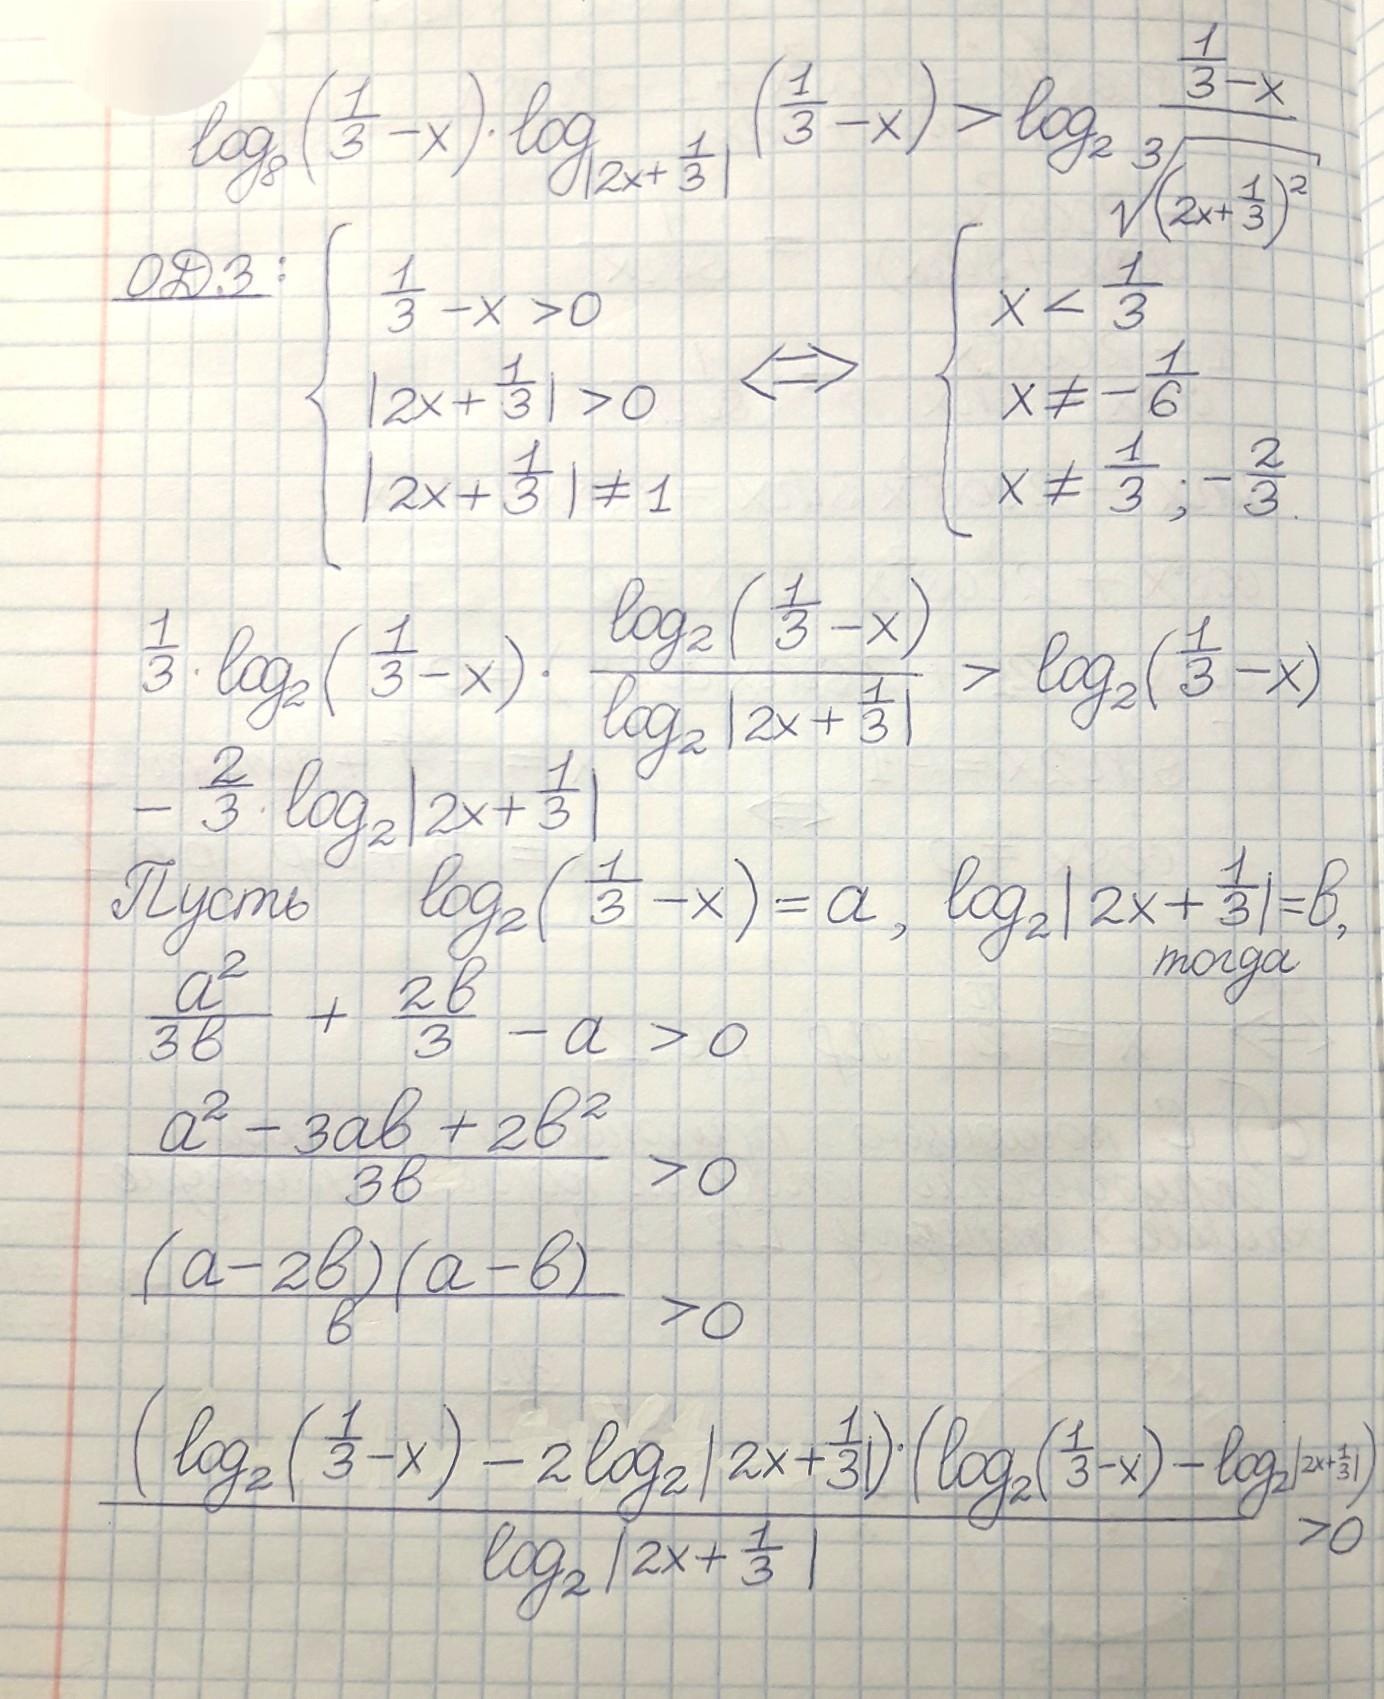 log₈(1/3 − x) · log_|2x + 1/3| (1/3 − x) > log₂ (1/3 − x)/∛((2x + 1/3)²)
ОДЗ: { 1/3 − x > 0 ⇔ { x < 1/3
|2x + 1/3| > 0 x ≠ −1/6
|2x + 1/3| ≠ 1 x ≠ 1/3 ; −2/3.
1/3 · log₂(1/3 − x) · log₂(1/3 − x)/log₂|2x + 1/3| > log₂(1/3 − x)
− 2/3 · log₂|2x + 1/3|
Пусть log₂(1/3 − x) = a, log₂|2x + 1/3| = b,
тогда
a²/3b + 2b/3 − a > 0
(a² − 3ab + 2b²)/3b > 0
(a − 2b)(a − b)/b > 0
(log₂(1/3 − x) − 2log₂|2x + 1/3|) · (log₂(1/3 − x) − log₂|2x + 1/3|)/log₂|2x + 1/3| > 0